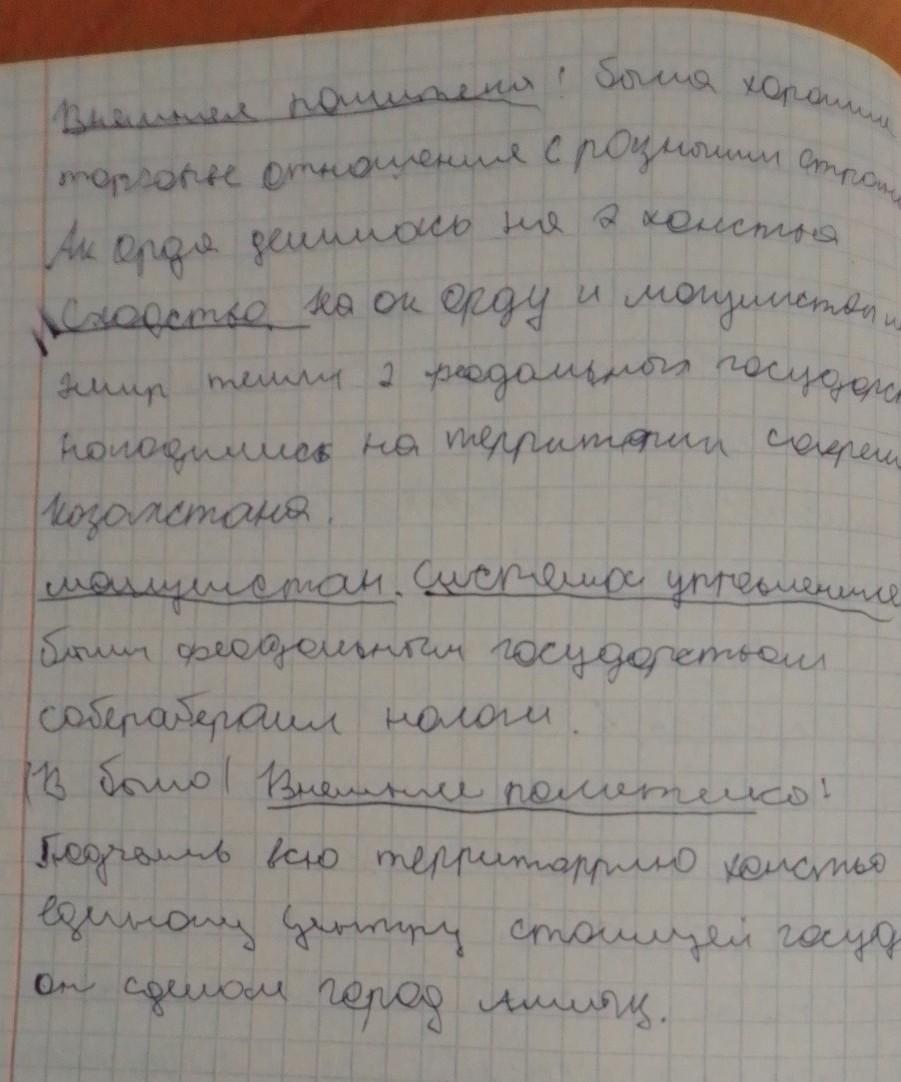 Внешняя политика! была хорошии
торговые отношения с розными стран
Ак орда делилось на 2 ханства
Сходства на ок орду и могулистан
эмир темир 2 феодальных государс
находились на территории
Козахстана.
могулистан. Система упревление
были феодальным государством
собераберали нологи.
В было Внешние полетико!
Подчинив всю территоррию ханство
единому центру столицей госуд
он сделал город Алмалык.